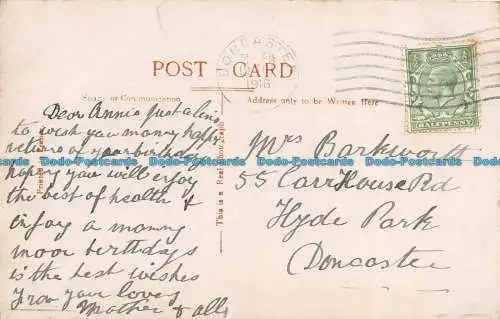 DONCASTER
1916
POST CARD
Space for Communication
Address only to be Written Here
Dear Annie Just a line
to wish you manny happy
returns of your birthday
hoping you will enjoy
the best of health &
injoy a manny
moor birthdays
is the best wishes
from your loving
Mother & alls
This is a Real Photograph
Mrs Barkworth
55 Carr House Rd
Hyde Park
Doncaster
HALFPENNY
Postcards Postcards Postcards Postcards Postcards